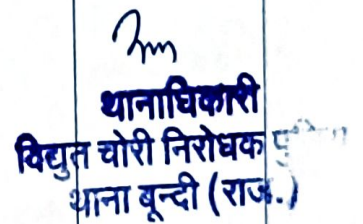 थानाधिकारी
विद्युत चोरी निरोधक
थाना बून्दी (राज.)